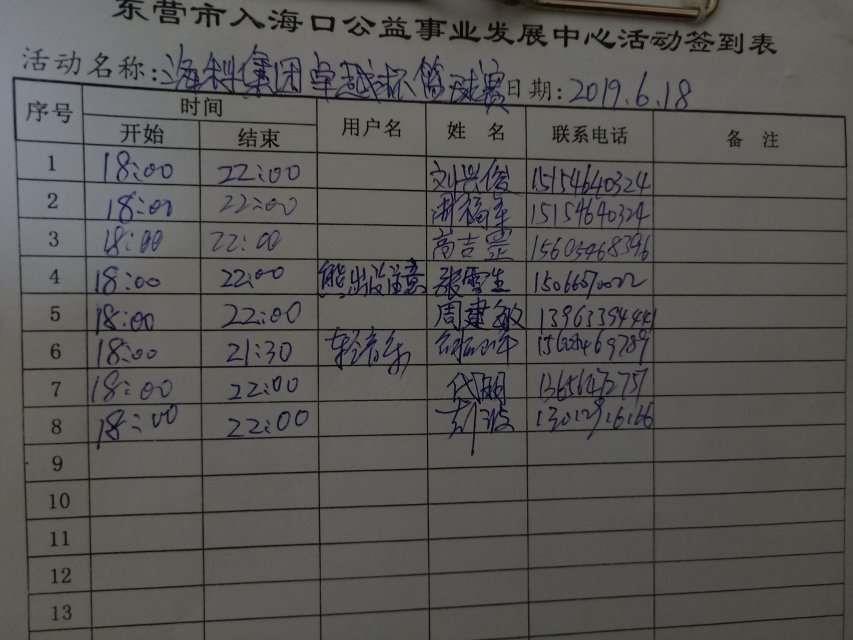 东营市入海口公益事业发展中心活动签到表
活动名称:海科集团卓越杯篮球赛 日期:2019.6.18
序号 时间 用户名 姓名 联系电话 备注
开始 结束
1 18:00 22:00 刘兴俊 15154640324
2 18:00 22:00 15154640324
3 18:00 22:00 高吉 15605468396
4 18:00 22:00 熊出没注意 张雪生
5 18:00 22:00 周建敏 13963394441
6 18:00 21:30
7 18:00 22:00 代明
8 18:00 22:00
9
10
11
12
13